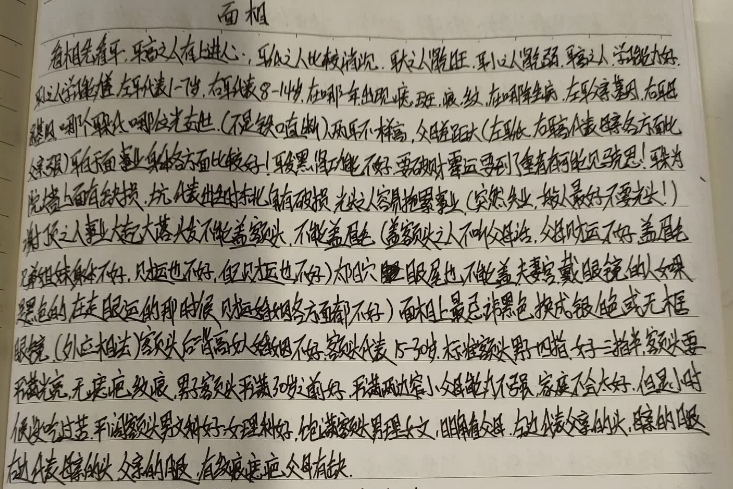 面相
看相先看耳，耳高之人有上进心，耳低之人比较消沉，耳大之人肾旺，耳小之人肾弱，耳高之人，学习能力好，
左耳代表1-7岁，右耳代表8-14岁，在哪一年出现，痣，斑，痕，纹，在哪年生病，左耳父亲基因，右耳母
亲基因，哪个耳低哪位先去世，（不是铁口直断）两耳不一样高，父母差距大（左耳低，右耳高代表母亲各方面比
父亲强）耳白于面事业身体各方面比较好！耳发黑，肾功能不好，要破财霉运要到了重者有可能见马克思！耳朵为
院墙上面有缺损，坑，代表出生时老北角有破损，光头之人容易拖累事业（突然失业，一般人最好不要光头！）
谢顶之人事业大起大落头发不能盖额头，不能盖眉毛（盖额头之人不听父母话，父母财运不好，盖眉毛
兄弟姐妹身体不好，财运也不好，自己财运也不好）太阳穴眼尾也不能盖夫妻宫戴眼镜的人如果
是黑色的在走眼运的那时候，财运婚姻各方面都不好）面相上最忌讳黑色，换成银色或无框
眼镜（外应相法）额头后背高女人婚姻不好，额头代表15-30岁，标准额头男子四指，女子三指半，额头要
平满光亮，无痣疤纹痕，男子额头平满30岁之前好，平满两边窄小父母能力不强，家庭不会太好，但是小时
候没吃过苦，平满额头男文科好女理科好，饱满额头男理女文，日月角看父母，左边代表父亲的头，母亲的眼
右边代表母亲的头，父亲的眼，有纹痕痣疤父母有缺．